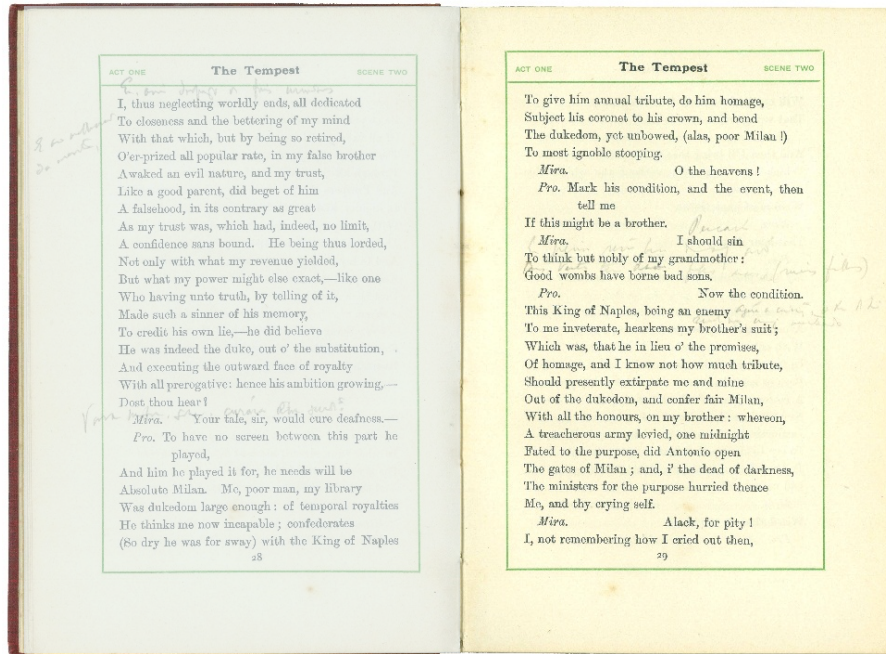 ACT ONE The Tempest SCENE TWO
I, thus neglecting worldly ends, all dedicated
To closeness and the bettering of my mind
With that which, but by being so retired,
O'er-prized all popular rate, in my false brother
Awaked an evil nature, and my trust,
Like a good parent, did beget of him
A falsehood, in its contrary as great
As my trust was, which had, indeed, no limit,
A confidence sans bound. He being thus lorded,
Not only with what my revenue yielded,
But what my power might else exact,—like one
Who having unto truth, by telling of it,
Made such a sinner of his memory,
To credit his own lie,—he did believe
He was indeed the duke, out o' the substitution,
And executing the outward face of royalty
With all prerogative: hence his ambition growing,—
Dost thou hear?
Mira. Your tale, sir, would cure deafness.—
Pro. To have no screen between this part he
played,
And him he played it for, he needs will be
Absolute Milan. Me, poor man, my library
Was dukedom large enough: of temporal royalties
He thinks me now incapable; confederates
(So dry he was for sway) with the King of Naples
28
ACT ONE The Tempest SCENE TWO
To give him annual tribute, do him homage,
Subject his coronet to his crown, and bend
The dukedom, yet unbowed, (alas, poor Milan!)
To most ignoble stooping.
Mira. O the heavens!
Pro. Mark his condition, and the event, then
tell me
If this might be a brother.
Mira. I should sin
To think but nobly of my grandmother:
Good wombs have borne bad sons.
Pro. Now the condition.
This King of Naples, being an enemy
To me inveterate, hearkens my brother's suit;
Which was, that he in lieu o' the promises,
Of homage, and I know not how much tribute,
Should presently extirpate me and mine
Out of the dukedom, and confer fair Milan,
With all the honours, on my brother: whereon,
A treacherous army levied, one midnight
Fated to the purpose, did Antonio open
The gates of Milan; and, i' the dead of darkness,
The ministers for the purpose hurried thence
Me, and thy crying self.
Mira. Alack, for pity!
I, not remembering how I cried out then,
29